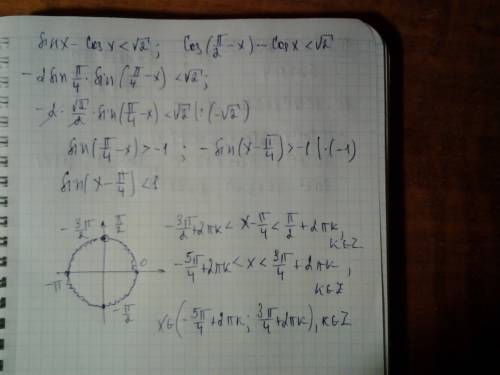 sinx - cosx < √2 ; cos(π/2 - x) - cosx < √2
- 2 sin π/4 · sin(π/4 - x) < √2 ;
- 2 · √2/2 · sin(π/4 - x) < √2 | : (-√2)
sin(π/4 - x) > -1 ; - sin(x - π/4) > -1 | · (-1)
sin(x - π/4) < 1
- 3π/2 π/2
-π 0
- π/2
- 3π/2 + 2πk < x - π/4 < π/2 + 2πk, k∈Z
- 5π/4 + 2πk < x < 3π/4 + 2πk, k∈Z
x∈(- 5π/4 + 2πk ; 3π/4 + 2πk), k∈Z